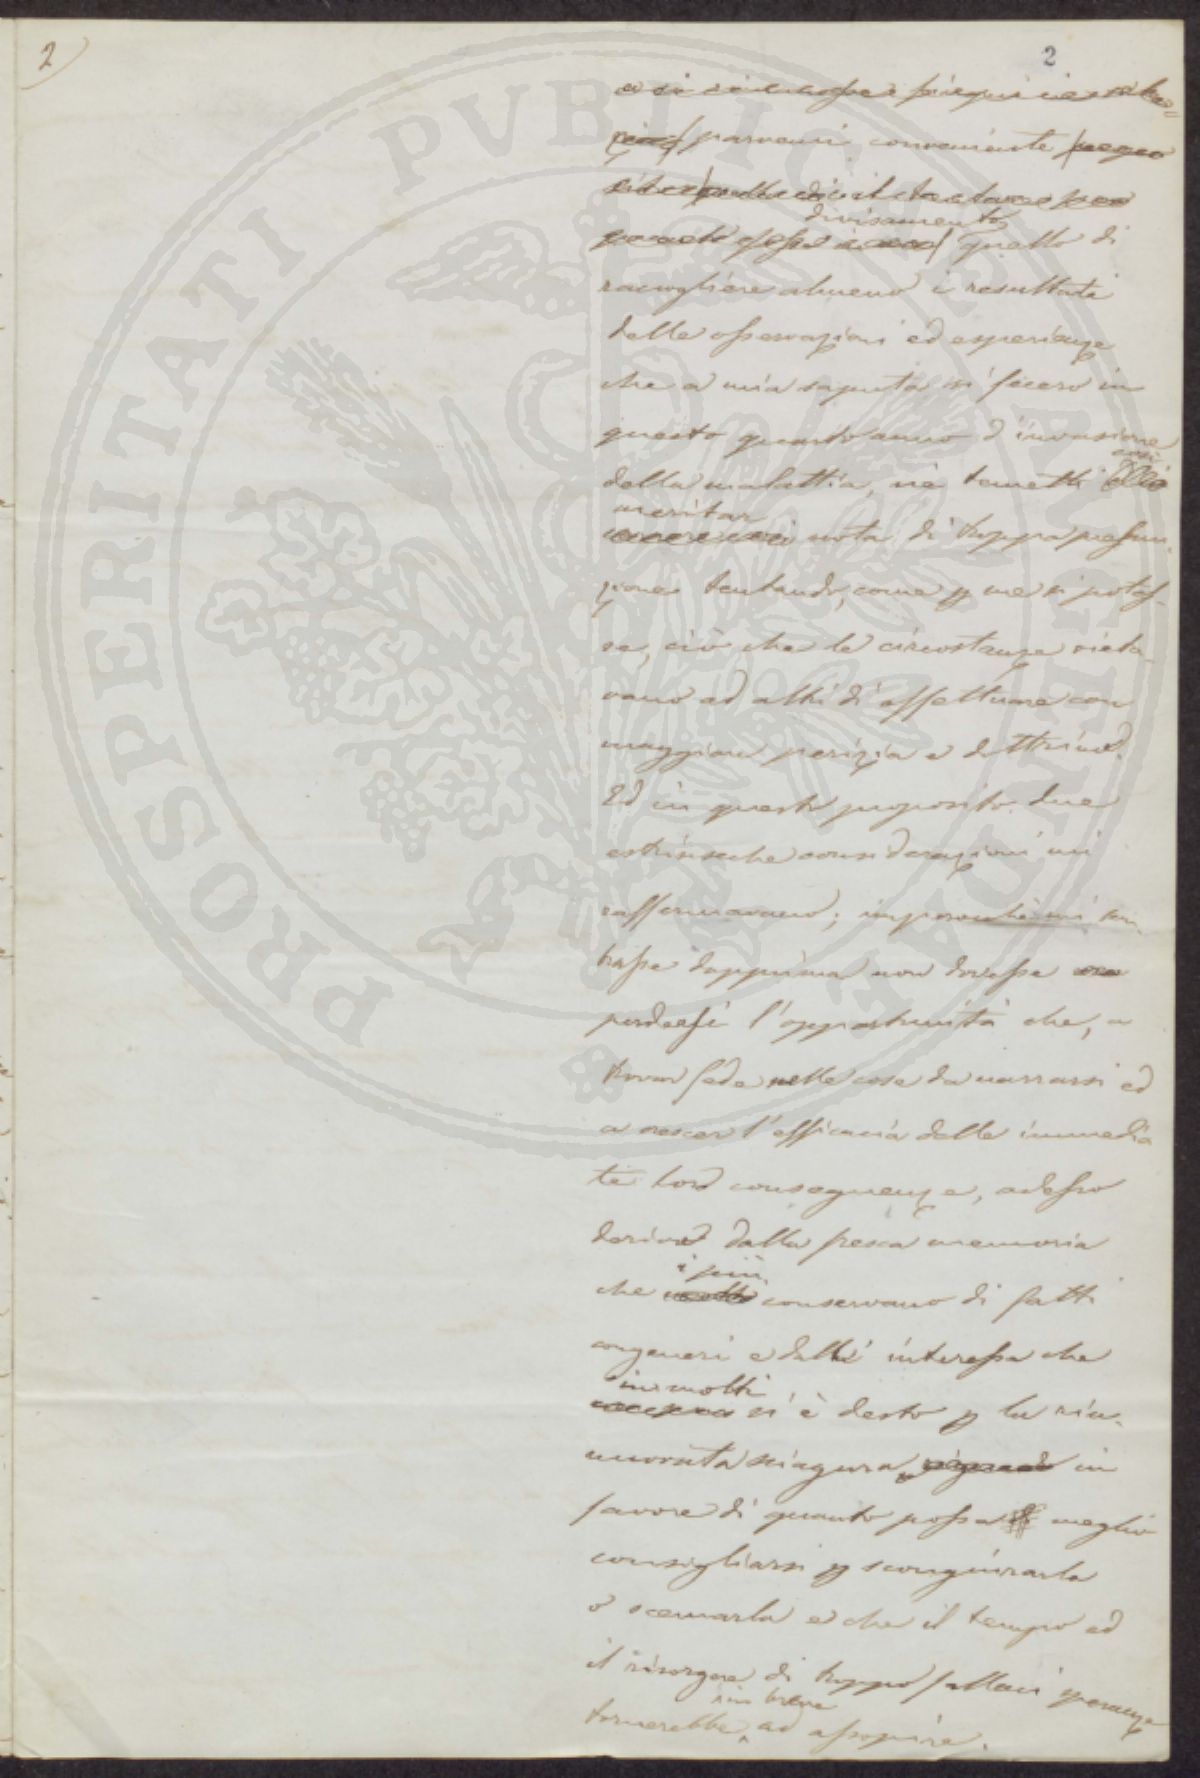 2)
2
parvemi conveniente
divisamento
quello di
raccogliere almeno i resultati
delle osservazioni ed esperienze
che a mia saputa si fecero in
questo quarto anno d'invasione
della malattia, nè temetti
meritar
nota di troppa presun-
zione tentando, come p me si potes-
se, ciò che le circostanze vieta-
vano ad altri di effettuare con
maggiore perizia e dottrina.
Ed in questo proposito due
estrinseche considerazioni mi
raffermavano; imperocchè mi sem-
brasse dapprima non dovesse
perdersi l'opportunità che, a
trovar fede nelle cose da narrarsi ed
a crescer l'efficacia delle immedia
te loro conseguenze, adesso
deriva dalla fresca memoria
i più
che molti conservano di fatti
congeneri e dall' interesse che
in molti
si è desto p la rin-
novata sciagura, in
favore di quanto possa meglio
consigliarsi p scongiurarla
o scemarla e che il tempo ed
il risorgere di troppo fallaci speranze
in breve
tornerebbe ad assopire.
PROSPERITATI PUBLICAE AUGENDAE